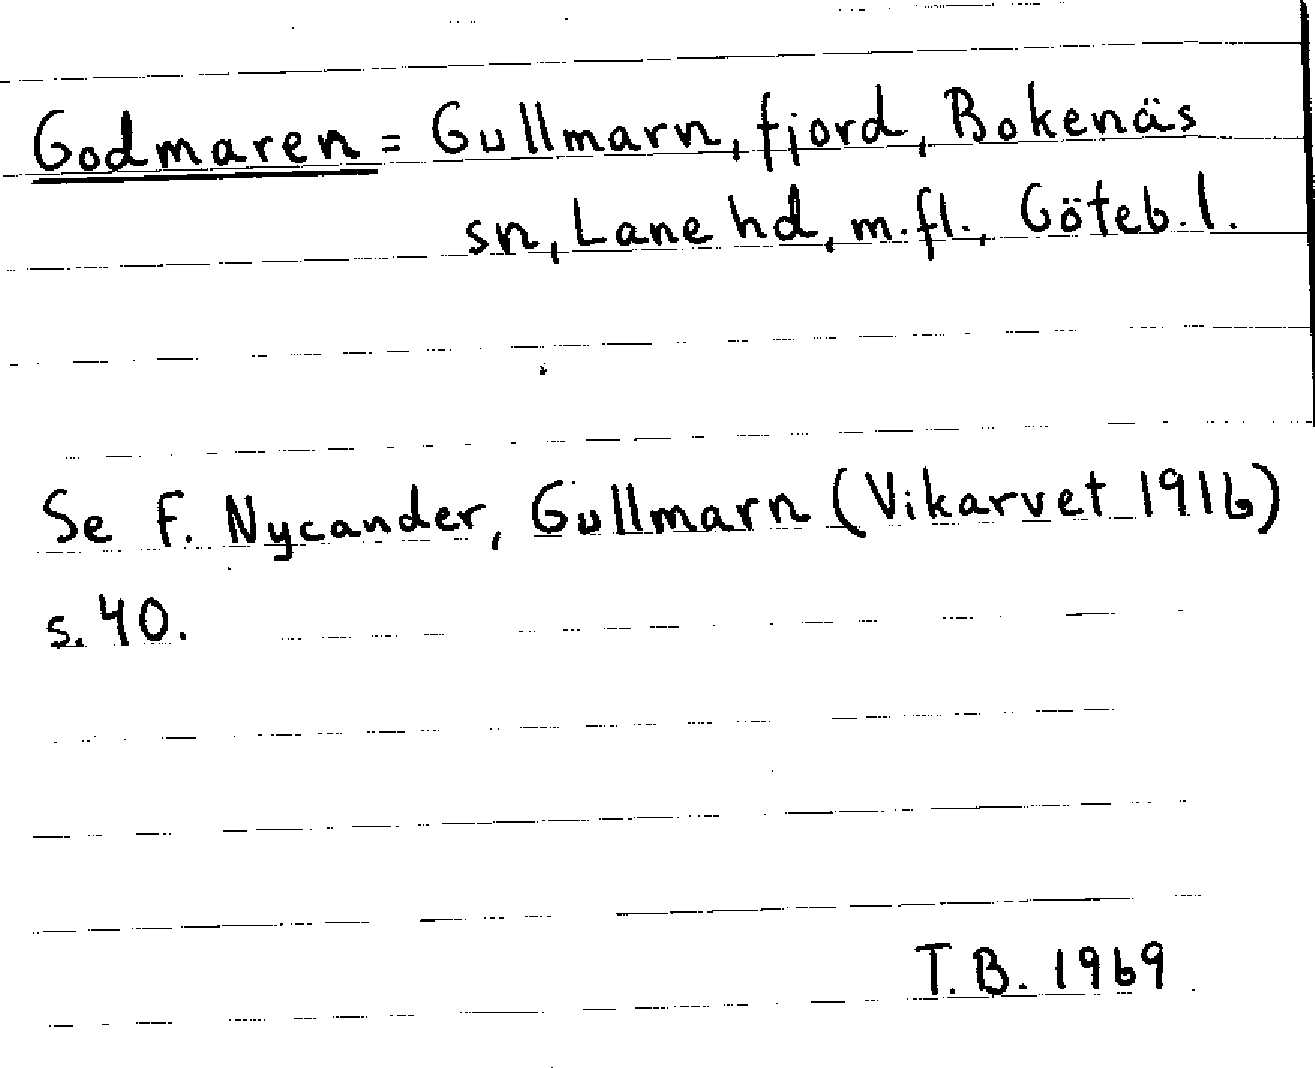 Godmaren = Gullmarn, fjord, Bokenäs
sn, Lane hd, m.fl., Göteb.l.
Se F. Nycander, Gullmarn (Vikarvet 1916)
s. 40.
T.B. 1969